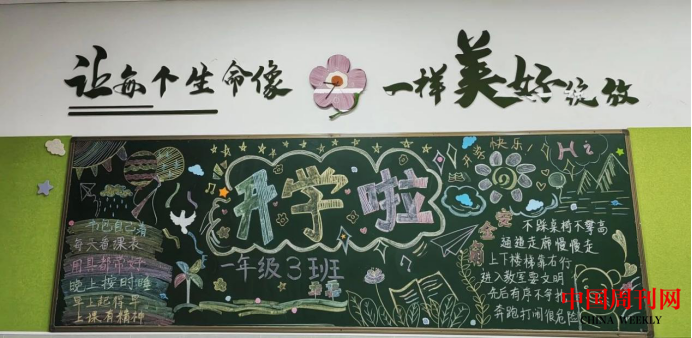 让每个生命像
一样美好绽放
开学啦
一年级3班
开学快乐!
Hi
书包自己背
每天看课表
用具都带好
晚上按时睡
早上起得早
上课有精神
安全角
不踩桌椅不攀高
过道走廊慢慢走
上下楼梯靠右行
进入教室要文明
先后有序不争
奔跑打闹很危险
中国周刊网
CHINA WEEKLY